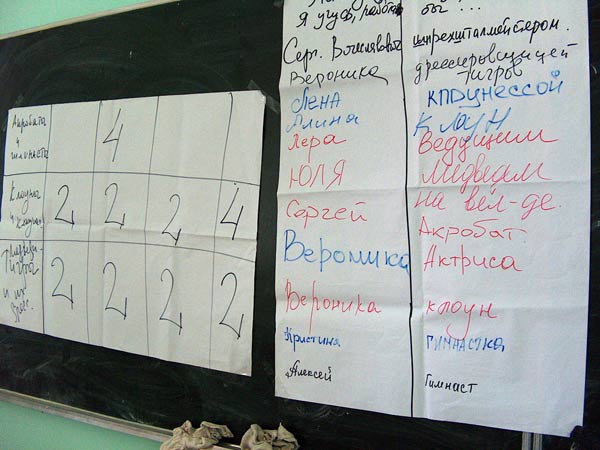 Акробаты
и
гимнасты
4
Клоуны
2 2 2 4
тигры
и их
дресс.
2 2 2 2
бы ...
Серг. Вячеславович шпрехшталмейстером.
Вероника дрессировщицей
тигров
Лена клоунессой
Алина Клоун
Лера Ведущим
ЮЛЯ Медведем
на вел-де.
Сергей Акробат
Вероника Актриса
Вероника клоун
Кристина гимнастка
Алексей Гимнаст